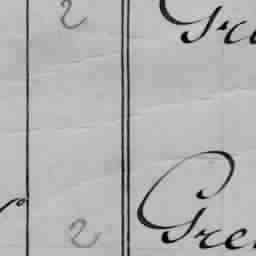 2 Gre
2 Gre